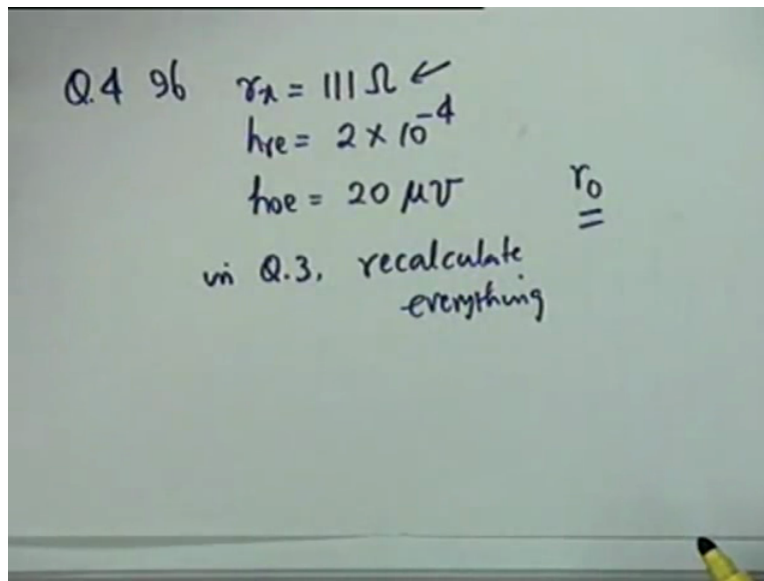 Q.4 If rx = 111 Ω ←
hre = 2 × 10⁻⁴
hoe = 20 μ℧
r₀
in Q.3, recalculate
everything